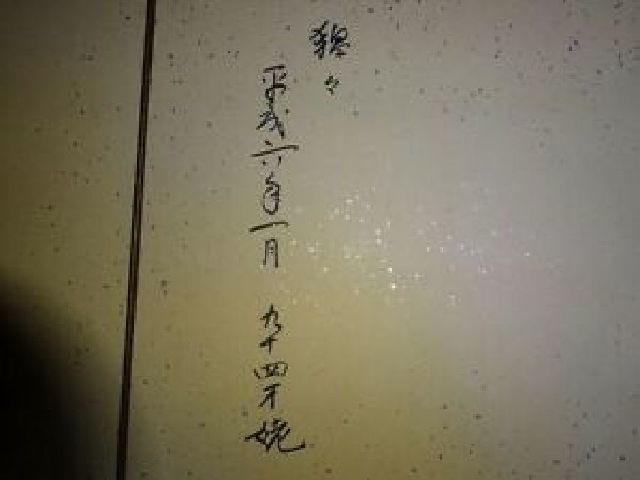 平成六年一月 九十四才 姥